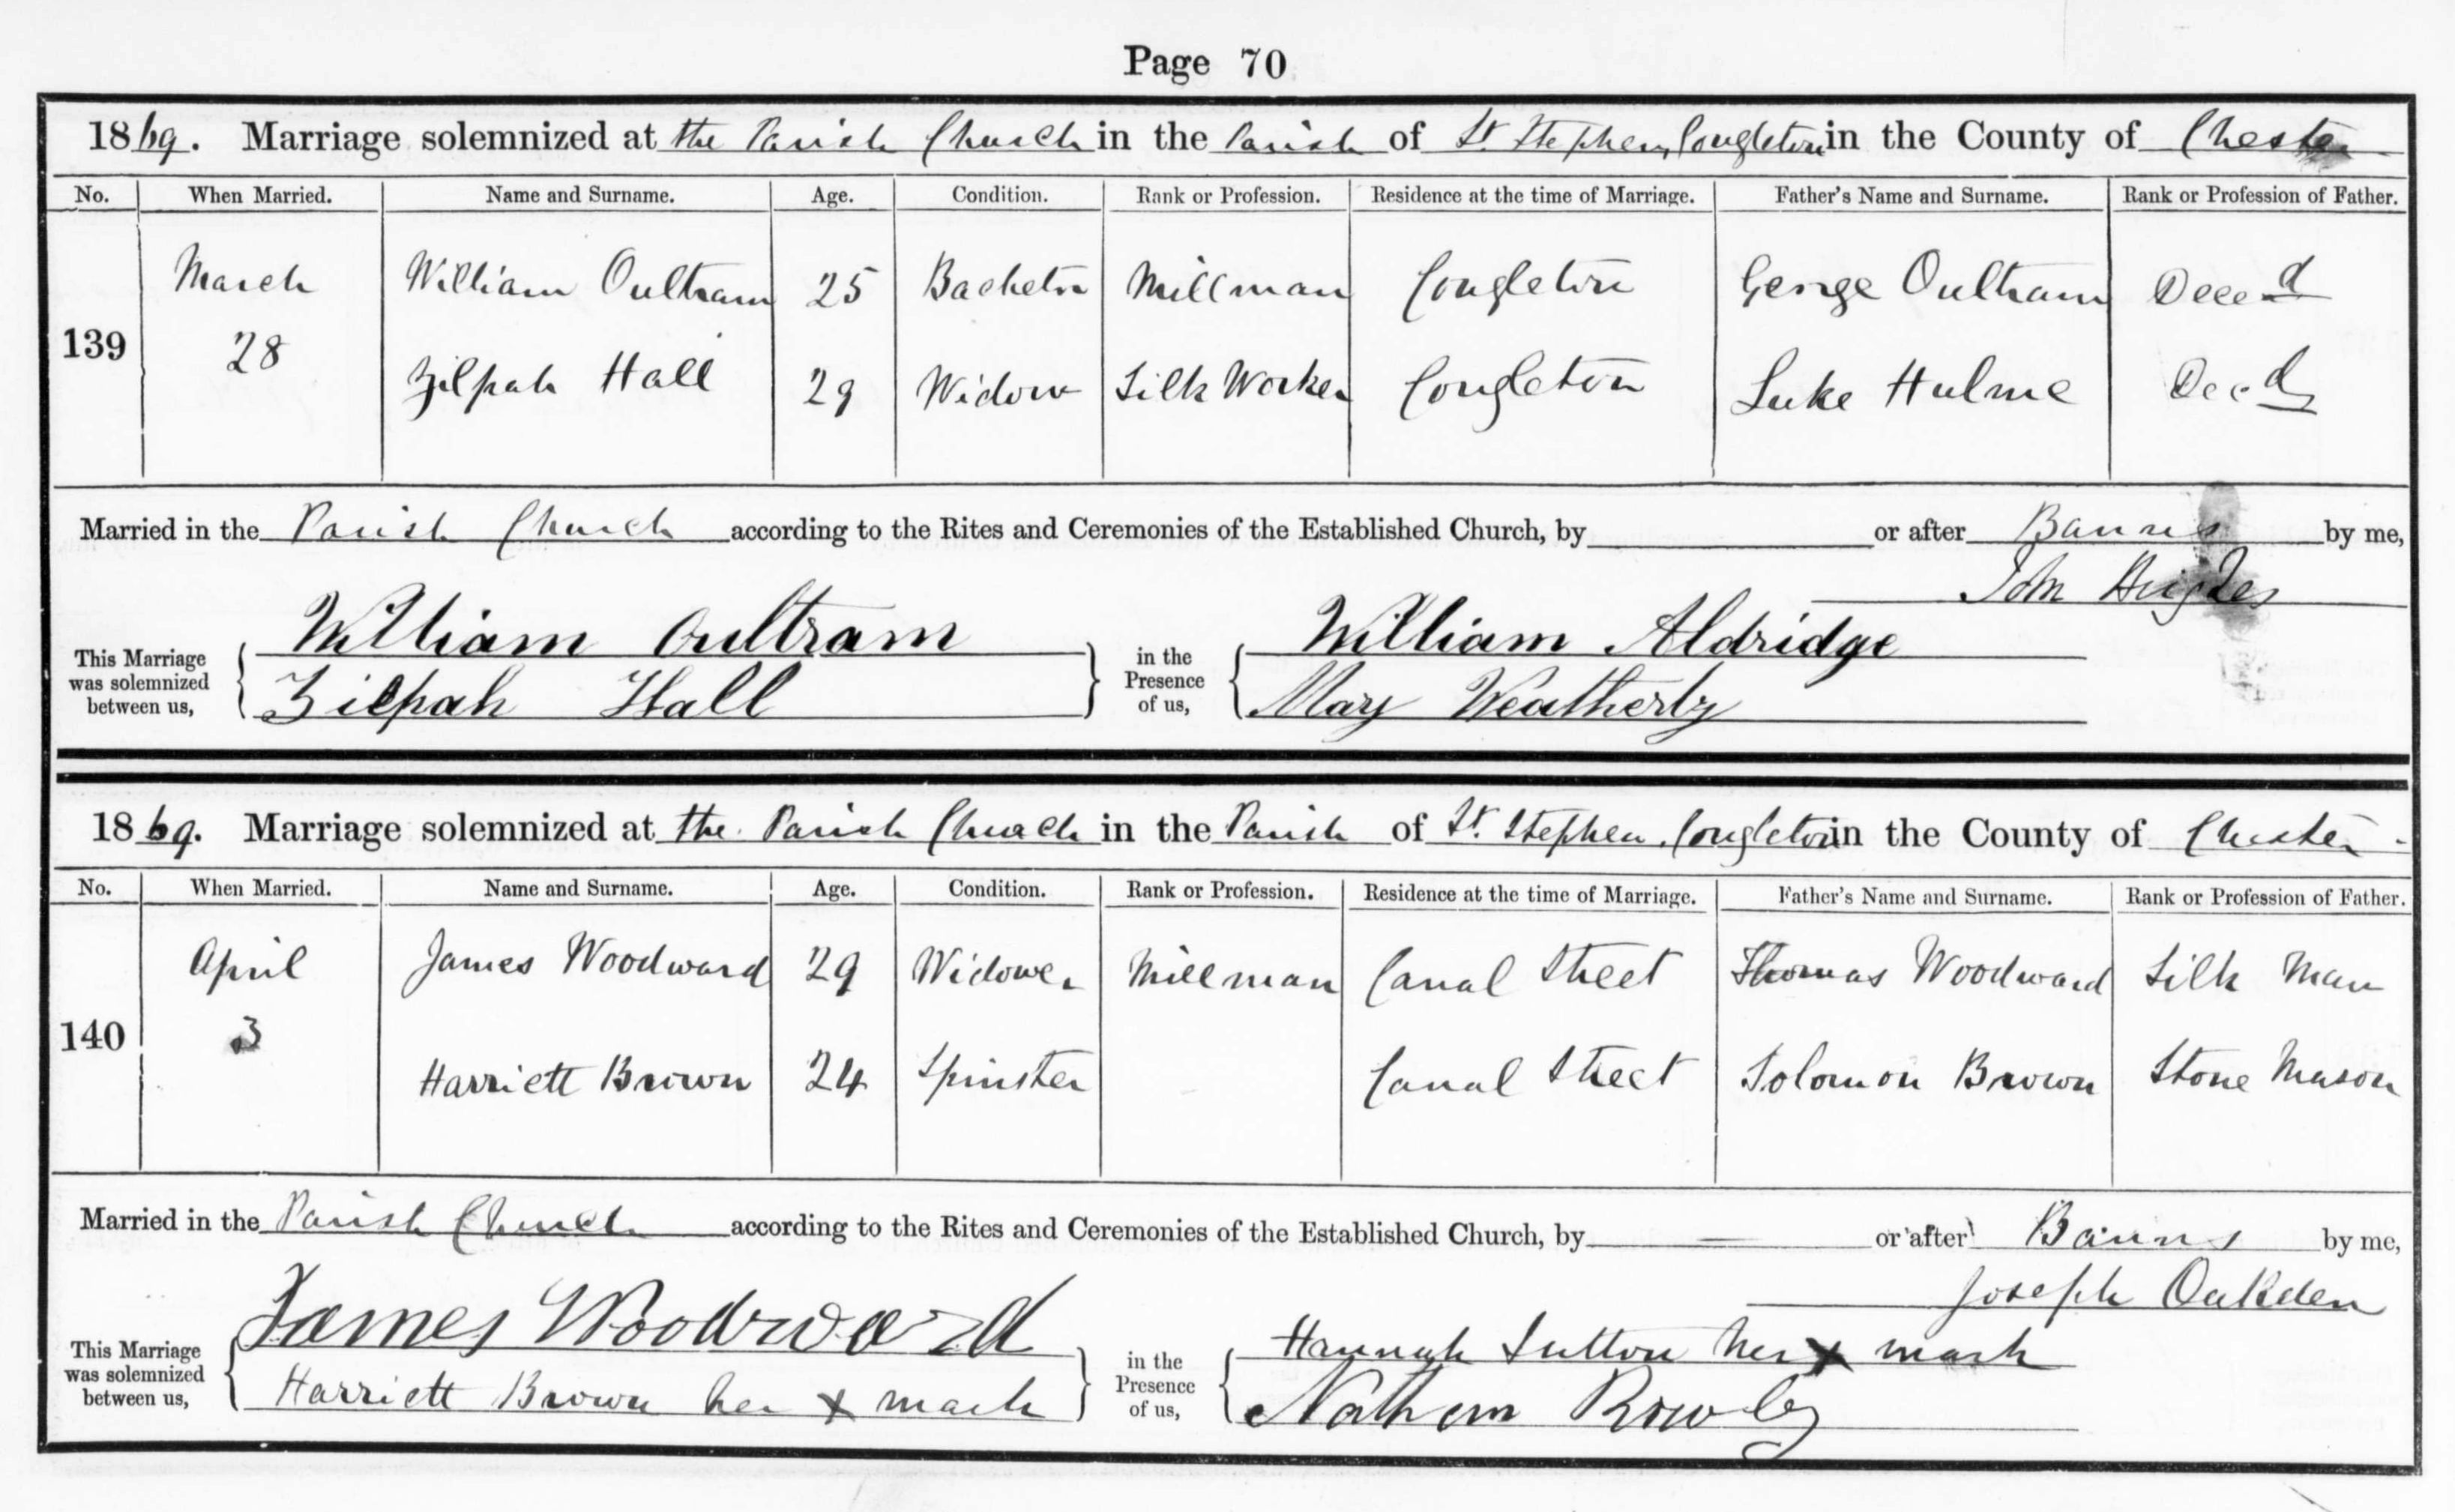 Page 70
1869. Marriage solemnized at the Parish Church in the Parish of St. Stephen, Congleton in the County of Chester
No. When Married. Name and Surname. Age. Condition. Rank or Profession. Residence at the time of Marriage. Father's Name and Surname. Rank or Profession of Father.
March William Oultram 25 Bachelor Millman Congleton George Oultram Decd
139 28 Zilpah Hall 29 Widow Silk Worker Congleton Luke Hulme Decd
Married in the Parish Church according to the Rites and Ceremonies of the Established Church, by or after Banns by me,
John Hughes
This Marriage was solemnized between us, William Oultram in the Presence of us, William Aldridge
Zilpah Hall Mary Weatherby
1869. Marriage solemnized at the Parish Church in the Parish of St. Stephen, Congleton in the County of Chester.
No. When Married. Name and Surname. Age. Condition. Rank or Profession. Residence at the time of Marriage. Father's Name and Surname. Rank or Profession of Father.
April James Woodward 29 Widower Millman Canal Street Thomas Woodward Silk Man
140 3 Harriett Brown 24 Spinster Canal Street Solomon Brown Stone Mason
Married in the Parish Church according to the Rites and Ceremonies of the Established Church, by — or after Banns by me,
Joseph Oakden
This Marriage was solemnized between us, James Woodward in the Presence of us, Hannah Sutton her x mark
Harriett Brown her x mark Nathan Rowley